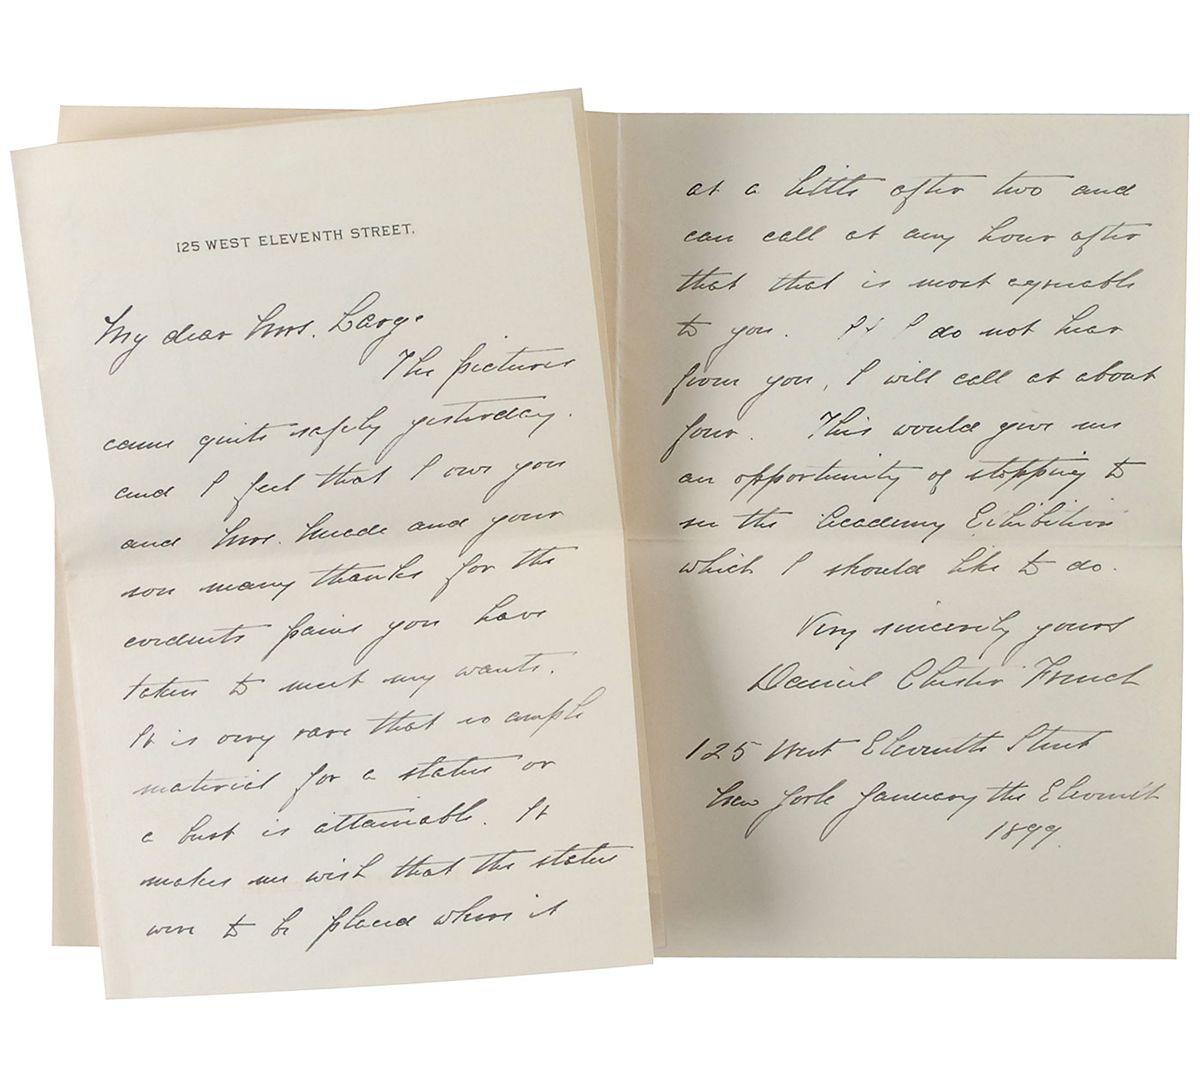 125 WEST ELEVENTH STREET.
My dear Mrs. Large
The pictures
came quite safely yesterday.
and I feel that I owe you
and Mrs. Meade and your
son many thanks for the
evidents pains you have
taken to meet my wants.
It is very rare that so ample
material for a statue or
a bust is attainable. It
makes me wish that the statue
were to be placed where it
at a little after two and
can call at any hour after
that that is most agreeable
to you. If I do not hear
from you, I will call at about
four. This would give me
an opportunity of stopping to
see the Academy Exhibition
which I should like to do.
Very sincerely yours
Daniel Chester French
125 West Eleventh Street
New York January the Eleventh
1899.